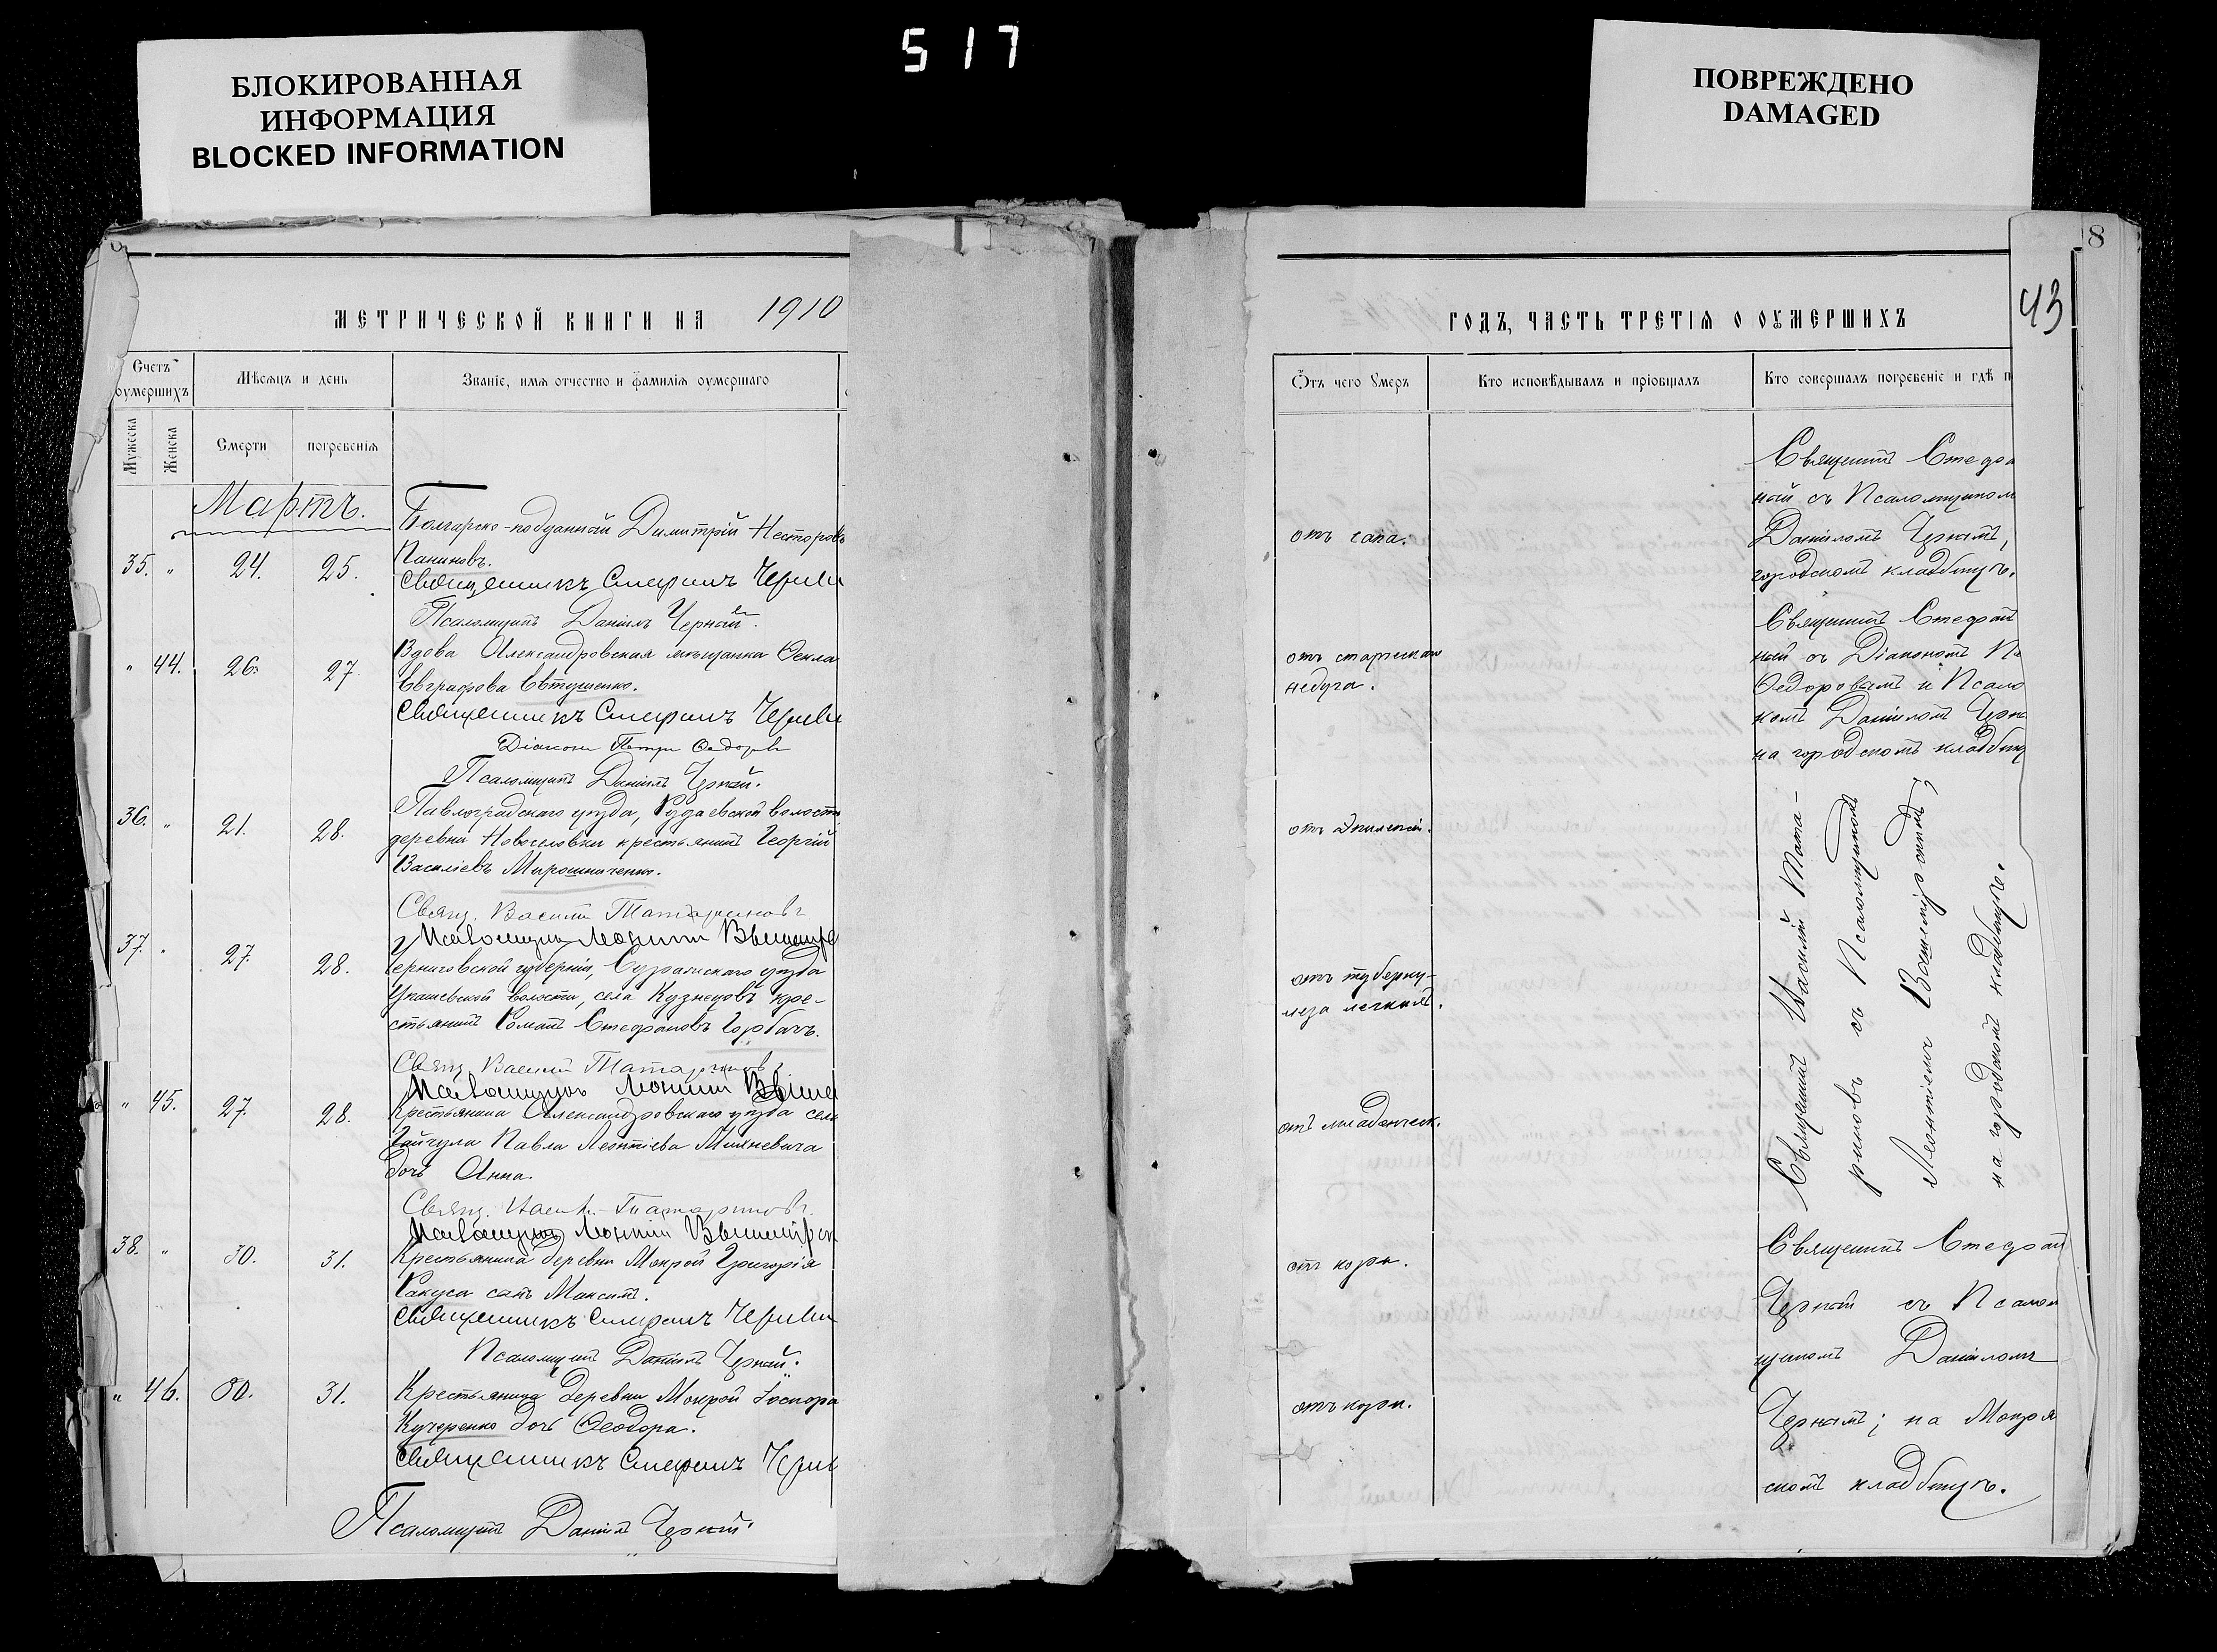 БЛОКИРОВАННАЯ
ИНФОРМАЦИЯ
BLOCKED INFORMATION
517
ПОВРЕЖДЕНО
DAMAGED
МЕТРИЧЕСКОЙ КНИГИ НА 1910
Счетъ оумершихъ
Мѣсяцъ и день
Званіе, имя отчество и фамилія оумершаго
Мужеска
Женска
Смерти
погребенія
Мартъ.
Болгарско-подданный Димитрій Несторовъ
35. „ 24. 25. Паниновъ.
Священникъ Стефанъ
Псаломщикъ Даніилъ Черный.
„ 44. 26. 27. Вдова Александровская мѣщанка Фекла
Евграфова Евтушенко.
Священникъ Стефанъ
Діаконъ Петръ Федоровъ
Псаломщикъ Даніилъ Черный.
36. „ 21. 28. Павлоградскаго уѣзда, волости
деревни Новоселовки крестьянинъ Георгій
Василіевъ Мирошниченко.
Свящ. Василій Татариновъ
37. „ 27. 28. Псаломщикъ Леонтій
Черниговской губерніи, Суражскаго уѣзда
волости, села Кузнецовъ кре-
стьянинъ Романъ Стефановъ Горбачъ.
Свящ. Василій Татариновъ
Псаломщикъ Леонтій
„ 45. 27. 28. Крестьянина Александровскаго уѣзда села
Павла Леонтіева Михневича
дочь Анна.
Свящ. Васил. Татариновъ.
Псаломщикъ Леонтій
38. „ 30. 31. Крестьянина деревни Мокрой Григорія
Ракуса сынъ Максимъ.
Священникъ Стефанъ
Псаломщикъ Даніилъ Черный.
„ 46. 30. 31. Крестьянина деревни Мокрой
Кучеренко дочь Феодора.
Священникъ Стефанъ
Псаломщикъ Даніилъ Черный.
8
43
ГОДЪ, ЧАСТЬ ТРЕТІЯ О ОУМЕРШИХЪ
Отъ чего Умеръ
Кто исповѣдывалъ и пріобщалъ
Кто совершалъ погребеніе и гдѣ п
Священникъ Стефа
ный съ Псаломщиком
отъ сапа.
Даніиломъ Чернымъ,
городскомъ кладбищѣ.
Священникъ Стефанъ
отъ старческаго
недуга.
ный съ Діакономъ
Федоровымъ и Псало
комъ Даніиломъ Черн
на городскомъ кладбищ
отъ эпилепсіи.
отъ туберку-
леза легкихъ.
отъ младенческ.
Священникъ Василій Тата-
риновъ съ Псаломщикомъ
Леонтіемъ
на городскомъ кладбищѣ.
отъ кори.
Священникъ Стефанъ
Черный съ Псалом
щикомъ Даніиломъ
отъ кори.
Чернымъ; на Мокрян
скомъ кладбищѣ.